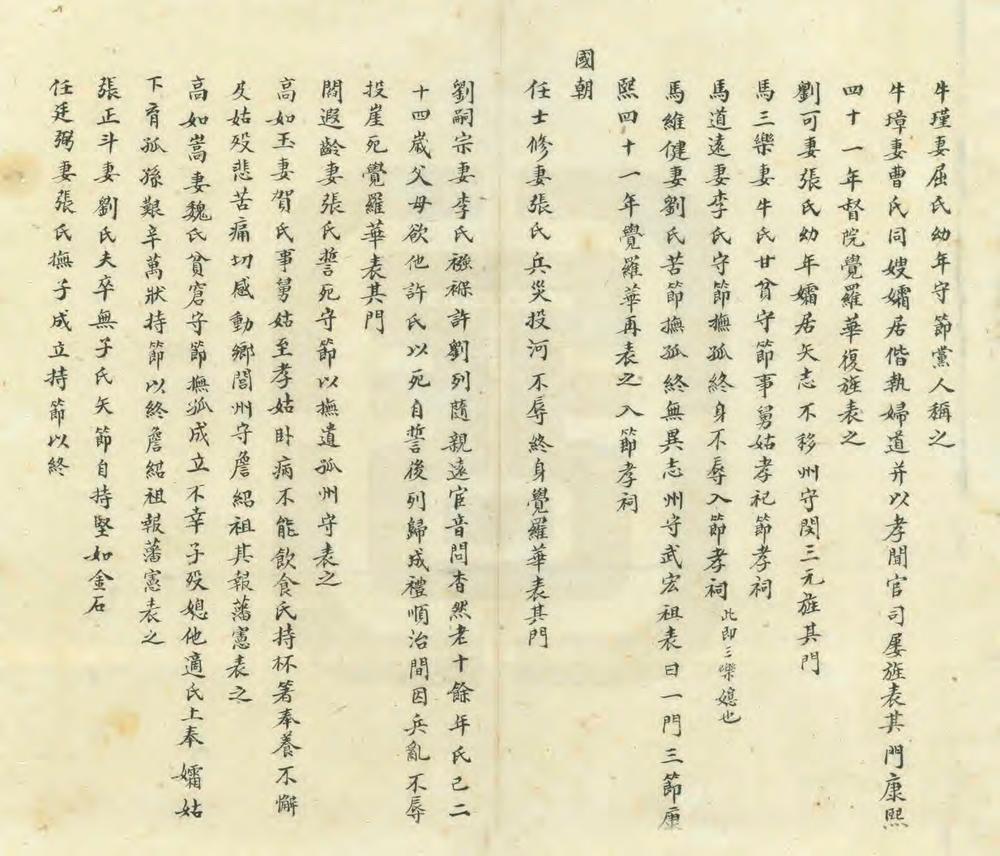 牛瑾妻屈氏幼年守節黨人稱之
牛璋妻曹氏同嫂孀居偕執婦道并以孝聞官司屢旌表其門康熙
四十一年督院覺羅華復旌表之
劉可妻張氏幼年孀居矢志不移州守閔三元旌其門
馬三樂妻牛氏甘貧守節事舅姑孝祀節孝祠
馬道遠妻李氏守節撫孤終身不辱入節孝祠此即三樂媳也
馬維健妻劉氏苦節撫孤終無異志州守武宏祖表曰一門三節康
熙四十一年覺羅華再表之入節孝祠
國朝
任士修妻張氏兵災投河不辱終身覺羅華表其門
劉嗣宗妻李氏襁褓許劉列隨親遠宦音問杳然老十餘年氏已二
十四歲父母欲他許氏以死自誓後列歸成禮順治間因兵亂不辱
投崖死覺羅華表其門
閻遐齡妻張氏誓死守節以撫遺孤州守表之
高如玉妻賀氏事舅姑至孝姑卧病不能飲食氏持杯箸奉養不懈
及姑歿悲苦痛切感動鄉閭州守詹紹祖具報藩憲表之
高如嵩妻魏氏貧窘守節撫孤成立不幸子歿媳他適氏上奉孀姑
下育孤孫艱辛萬狀持節以終詹紹祖報藩憲表之
張正斗妻劉氏夫卒無子氏矢節自持堅如金石
任廷弼妻張氏撫子成立持節以終